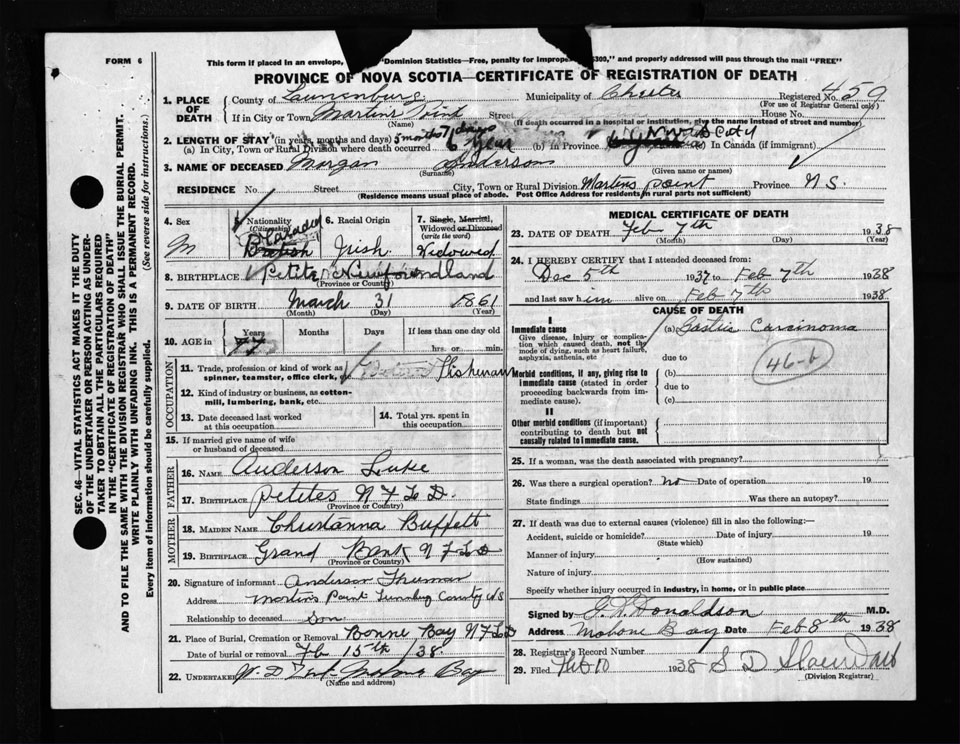 FORM 6
This form if placed in an envelope, "Dominion Statistics—Free, penalty for improper $300," and properly addressed will pass through the mail "FREE"
PROVINCE OF NOVA SCOTIA—CERTIFICATE OF REGISTRATION OF DEATH
1. PLACE OF DEATH County of Lunenburg Municipality of Chester Registered No. 459
(For use of Registrar General only)
If in City or Town Martins Point Street House No.
(Name) (If death occurred in a hospital or institution, give the name instead of street and number)
2. LENGTH OF STAY (in years, months and days) 5 months 7 days
(a) In City, Town or Rural Division where death occurred 6 year (b) in Province (c) In Canada (if immigrant)
3. NAME OF DECEASED Morgan Anderson
(Surname) (Given name or names)
RESIDENCE No. Street City, Town or Rural Division Martins point Province N S.
(Residence means usual place of abode. Post Office Address for residents in rural parts not sufficient)
4. Sex M
5. Nationality (Citizenship) British Canada
6. Racial Origin Irish
7. Single, Married, Widowed or Divorced (write the word) Widowed
8. BIRTHPLACE Petites Newfoundland
(Province or Country)
9. DATE OF BIRTH March 31 1861
(Month) (Day) (Year)
10. AGE in Years Months Days If less than one day old
77 hrs. or min.
OCCUPATION
11. Trade, profession or kind of work as spinner, teamster, office clerk, Fisherman
12. Kind of industry or business, as cotton-mill, lumbering, bank, etc.
13. Date deceased last worked at this occupation
14. Total yrs. spent in this occupation
15. If married give name of wife or husband of deceased
FATHER
16. NAME Anderson Luke
17. BIRTHPLACE Petites N F L D.
MOTHER
18. MAIDEN NAME Christanna Buffett
19. BIRTHPLACE Grand Bank N F L D
(Province or Country)
20. Signature of informant Anderson Thurman
Address Martins Point Lunenburg County N S
Relationship to deceased Son
21. Place of Burial, Cremation or Removal Bonne Bay N F L D
Date of burial or removal Feb 15th / 38
22. UNDERTAKER Mahone Bay
(Name and address)
MEDICAL CERTIFICATE OF DEATH
23. DATE OF DEATH Feb 7th 1938
(Month) (Day) (Year)
24. I HEREBY CERTIFY that I attended deceased from:
Dec 5th 1937 to Feb 7th 1938
and last saw him alive on Feb 7th 1938
CAUSE OF DEATH
I
Immediate cause (a) Gastric Carcinoma
Give disease, injury or complication which caused death, not the mode of dying, such as heart failure, asphyxia, asthenia, etc due to
46-b
Morbid conditions, if any, giving rise to immediate cause (stated in order proceeding backwards from immediate cause). (b)
due to
(c)
II
Other morbid conditions (if important) contributing to death but not causally related to immediate cause.
25. If a woman, was the death associated with pregnancy?
26. Was there a surgical operation? no Date of operation 19
State findings Was there an autopsy?
27. If death was due to external causes (violence) fill in also the following:—
Accident, suicide or homicide? Date of injury 19
(State which)
Manner of injury
(How sustained)
Nature of injury
Specify whether injury occurred in industry, in home, or in public place
Signed by Donaldson M.D.
Address Mahone Bay Date Feb 8th 1938
28. Registrar's Record Number
29. Filed Feb 10 1938 S D
(Division Registrar)
SEC. 46—VITAL STATISTICS ACT MAKES IT THE DUTY
OF THE UNDERTAKER OR PERSON ACTING AS UNDER-
TAKER TO OBTAIN ALL THE PARTICULARS REQUIRED
IN THE "CERTIFICATE OF REGISTRATION OF DEATH"
AND TO FILE THE SAME WITH THE DIVISION REGISTRAR WHO SHALL ISSUE THE BURIAL PERMIT.
WRITE PLAINLY WITH UNFADING INK. THIS IS A PERMANENT RECORD.
Every item of information should be carefully supplied. (See reverse side for instructions.)